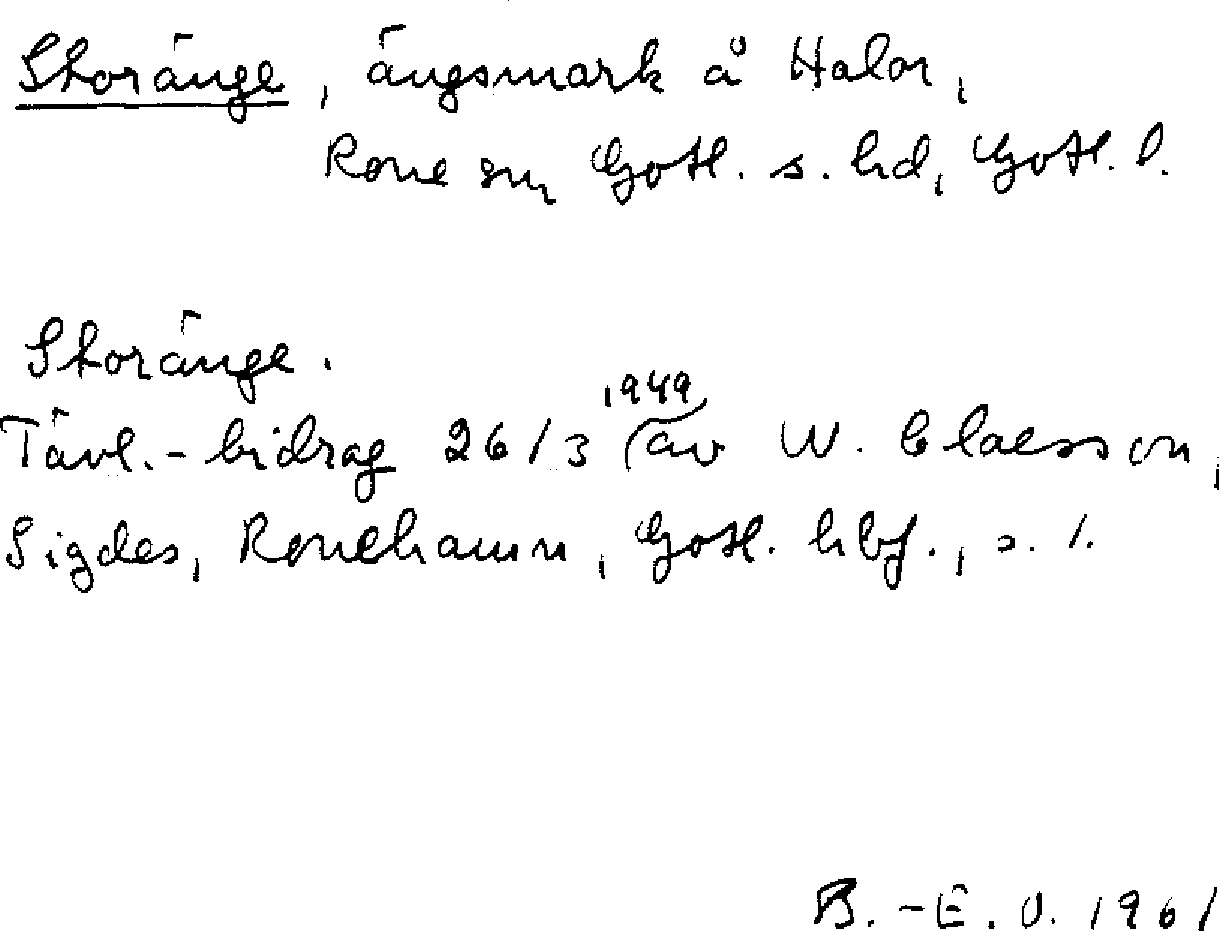 Storänge, ängsmark å Halor,
Rone sn, Gotl. s. hd, Gotl. l.
Storänge.
Tävl.-bidrag 26/3 1949 av W. Claesson,
Sigdes, Ronehamn, Gotl. hbf., s. 1.
B.-E. O. 1961